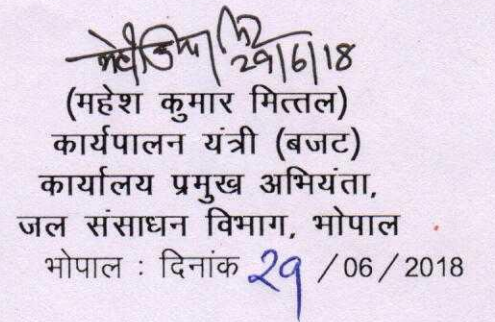 29/6/18
(महेश कुमार मित्तल)
कार्यपालन यंत्री (बजट)
कार्यालय प्रमुख अभियंता,
जल संसाधन विभाग, भोपाल
भोपाल : दिनांक 29 / 06 / 2018